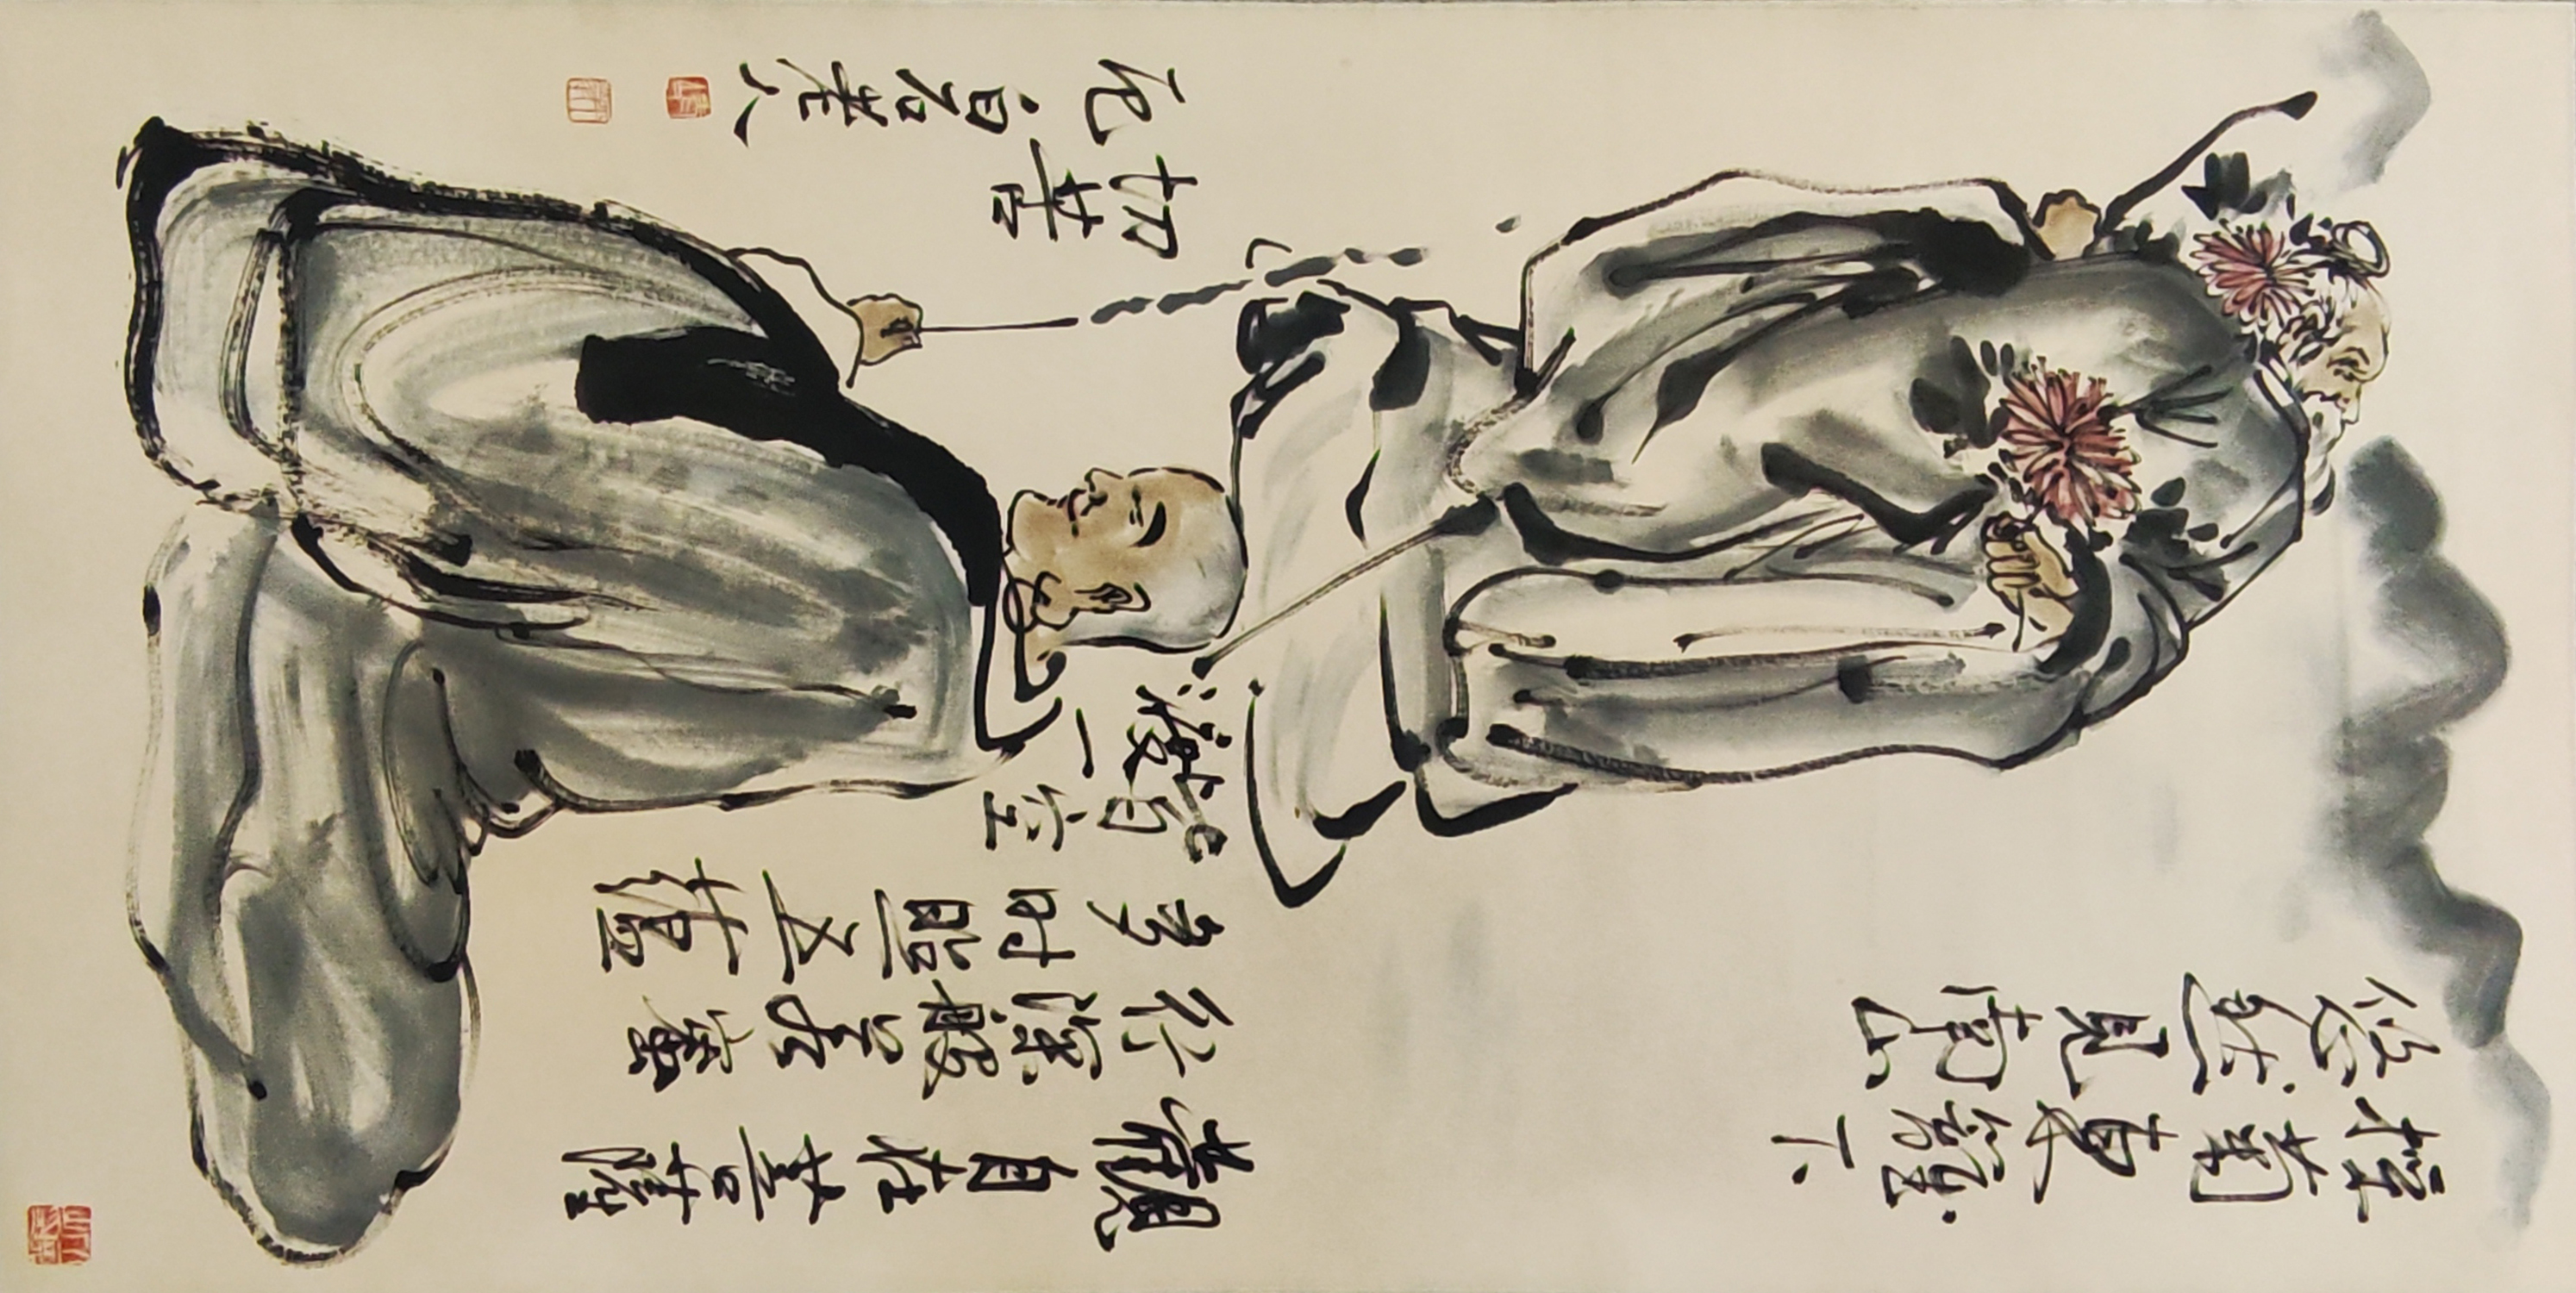 採菊東籬下
悠然見南山
觀自在菩薩
行深般若蜜
多时照五蘊
皆空
渡一
切苦
厄白石老人